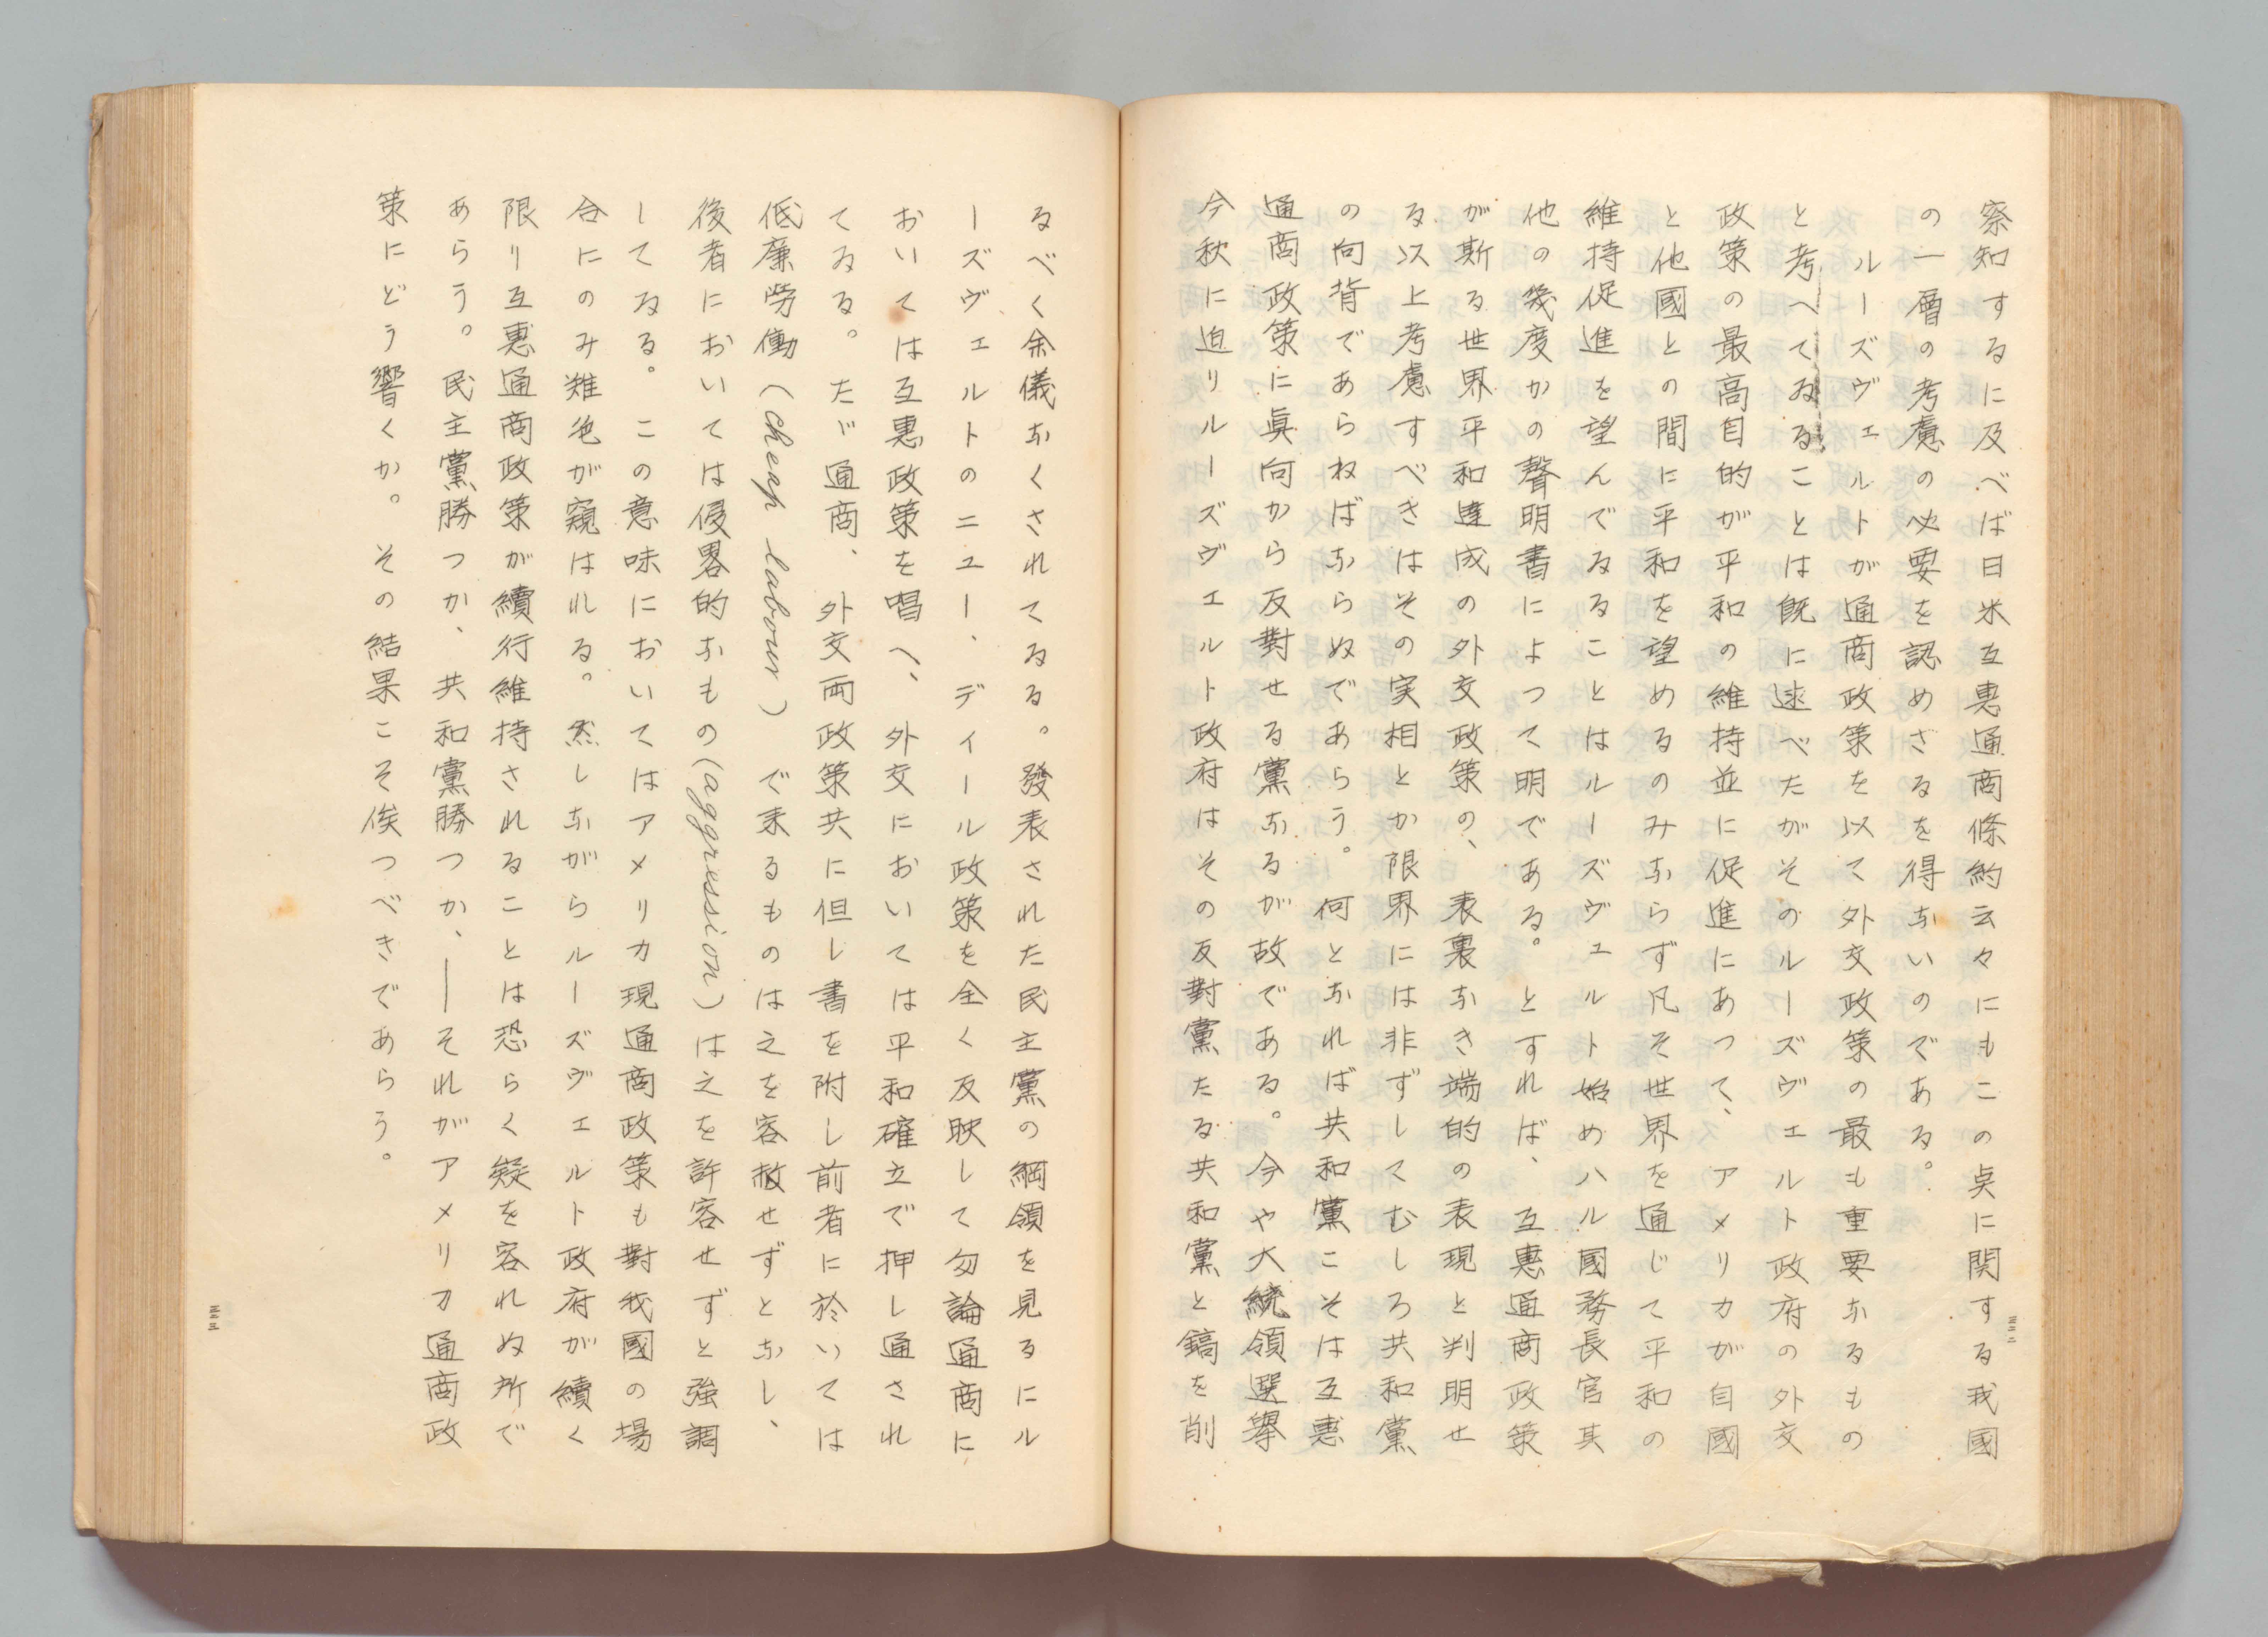 察知するに及べば日米互惠通商條約云々にもこの点に関する我國
の一層の考慮の必要を認めざるを得ないのである。
ルーズヴェルトが通商政策を以て外交政策の最も重要なるもの
と考へてゐることは既に述べたがそのルーズヴェルト政府の外交
政策の最高目的が平和の維持並に促進にあつて、アメリカが自國
と他國との間に平和を望めるのみならず凡そ世界を通じて平和の
維持促進を望んでゐることはルーズヴェルト始めハル國務長官其
他の幾度かの聲明書によつて明である。とすれば、互惠通商政策
が斯る世界平和達成の外交政策の、表裏なき端的の表現と判明せ
る以上考慮すべきはその実相とか限界には非ずしてむしろ共和黨
の向背であらねばならぬであらう。何となれば共和黨こそは互惠
通商政策に眞向から反對せる黨なるが故である。今や大統領選擧
今秋に迫りルーズヴェルト政府はその反對黨たる共和黨と鎬を削
るべく余儀なくされてゐる。發表された民主黨の綱領を見るにル
ーズヴェルトのニュー、ディール政策を全く反映して勿論通商に
おいては互惠政策を唱へ、外交においては平和確立で押し通され
てゐる。たゞ通商、外交両政策共に但し書を附し前者に於いては
低廉勞働(cheap labour)で来るものは之を容赦せずとなし、
後者においては侵畧的なもの(aggression)は之を許容せずと強調
してゐる。この意味においてはアメリカ現通商政策も對我國の場
合にのみ難色が窺はれる。然しながらルーズヴェルト政府が續く
限り互惠通商政策が續行維持されることは恐らく疑を容れぬ所で
あらう。民主黨勝つか、共和黨勝つか、――それがアメリカ通商政
策にどう響くか。その結果こそ俟つべきであらう。